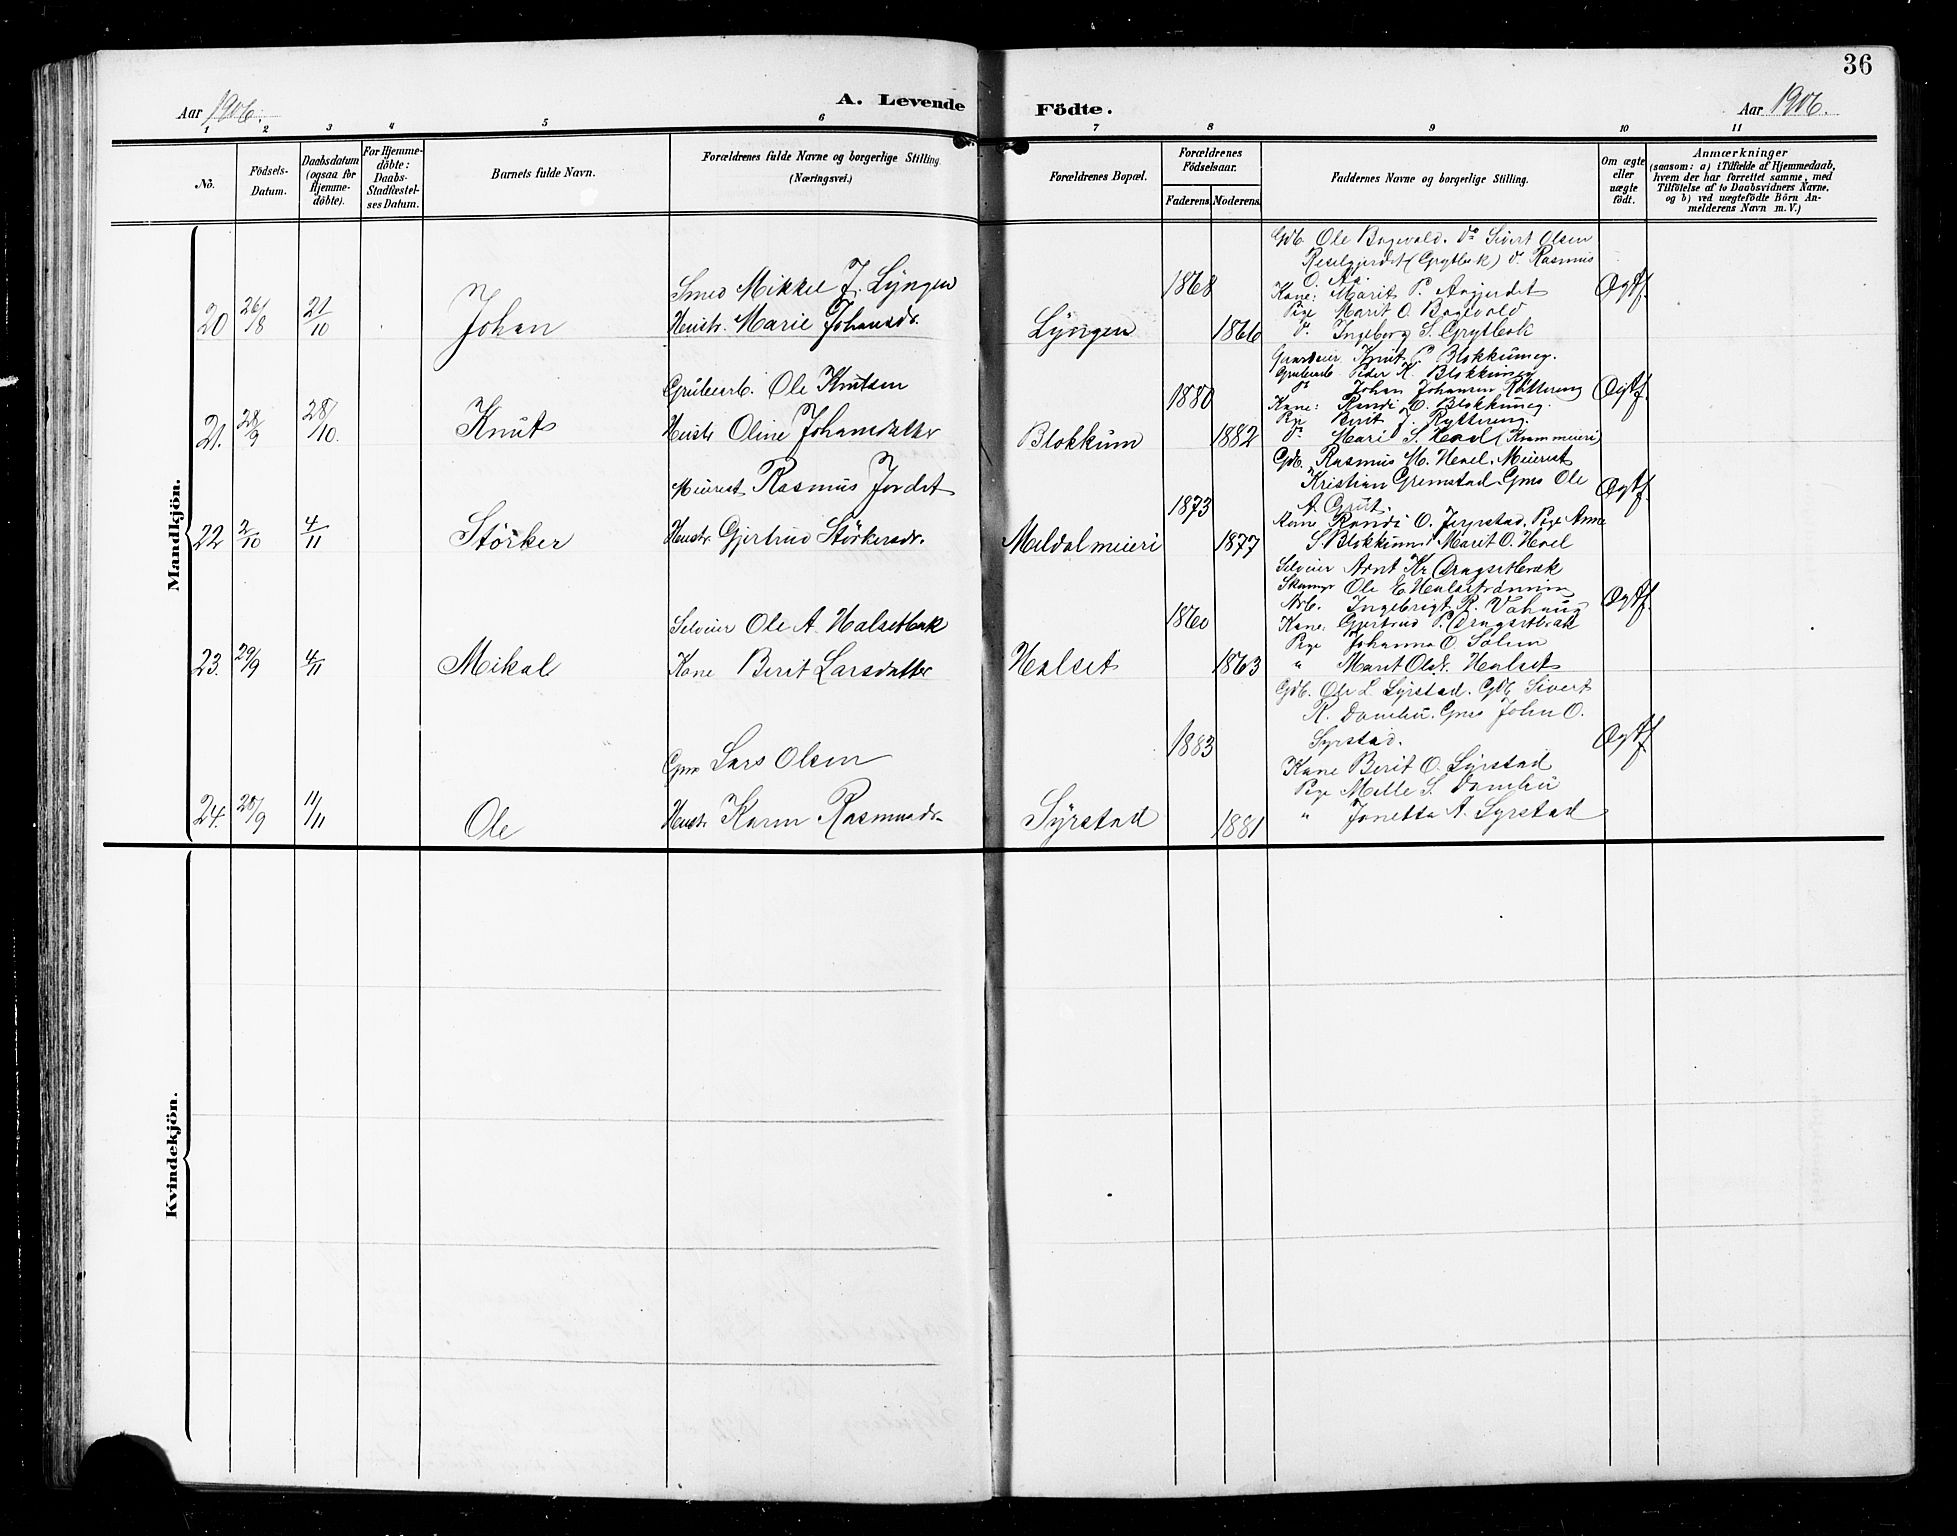 36
Aar 1906.
A. Levende
Födte.
Aar 1906.
1 2 3 4 5 6 7 8 9 10 11
No.
Födsels-
Datum.
Daabsdatum
(ogsaa for
Hjemme-
döbte).
For Hjemme-
döbte:
Daabs-
Stadfæstel-
ses Datum.
Barnets fulde Navn.
Forældrenes fulde Navne og borgerlige Stilling.
(Næringsvei.)
Forældrenes Bopæl.
Forældrenes
Födselsaar.
Faderens.
Moderens.
Faddernes Navne og borgerlige Stilling.
Om ægte
eller
uægte
födt.
Anmærkninger
(saasom: a) i Tilfælde af Hjemmedaab,
hvem der har forrettet samme, med
Tilföielse af to Daabsvidners Navne,
og b) ved uægtefödte Börn An-
melderens Navn m. V.)
Mandkjön.
20
26/8
21/10
Johan
Smed Mikkel J. Lyngen
Hustr. Marie Johansdr.
Lyngen
1868
1866
Gdb. Ole Bagevold. do Sivert Olsen
(Grytbak) do. Rasmus
O. Aa
Kone: Marit P.
Pige Marit O. Bagevold
do. Ingeborg S. Grytbak
Ægtf.
21.
28/9
28/10.
Knut
Grubearb. Ole Knutsen
Hustr. Oline Johansdatter
Blokkum
1880
1882
Gaardeier Knut P. Blokkumeg.
Grubearb. Peder K. Blokkumeg
do Johan Johansen Ryttereng
Kone: Randi O. Blokkumeg.
Pge Berit J. Rytterng.
do. Mari S. Hoel (Krammeieri)
Ægtf.
22
2/10
4/11
Störker
Meierest Rasmus Jordet
Hustr. Gjertrud Störkersdr.
Meldal meieri
1873
1877
Gdb. Rasmus M. Hoel. Meierest
Kristian Gremstad. Gms Ole
A. Grut.
Kone Randi O. Jerpstad. Pige Anne
S. Blokkum. Marit O. Hoel
Ægtf.
23.
29/9
4/11
Mikal
Selveier Ole A. Halsetbak
Kone Berit Larsdatter
Halset
1860
1863
Selveier Arnt Kr. Dragsetbæk
Ole E. Halsetrönnin
Arb. Ingebrigt R. Vahaug
Kone: Gjertrud P. Dragsetbak
Pige Johanna O. Solem
" Marit Olsdr. Halset
Ægtf.
24.
20/9
11/11
Ole
Gms Lars Olsen
Hustr. Karen Rasmusdr.
Syrstad
1883
1881
Gdb. Ole L. Syrstad. Gdb Sivert
R. Damhu. Gms John O.
Syrstad.
Kone Berit O. Syrstad
Pge Mille S. Damhu
" Jonetta A. Syrstad
Ægtf.
Kvindekjön.